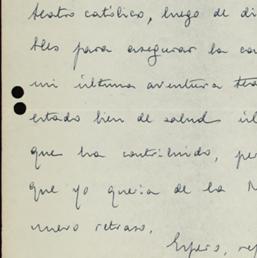 teatro católico, luego de di
bles para asegurar la con
mi última aventura tea
estado bien de salud úl
que ha contribuido, per
que yo quería de la N
nuevo retraso.
Espero, re